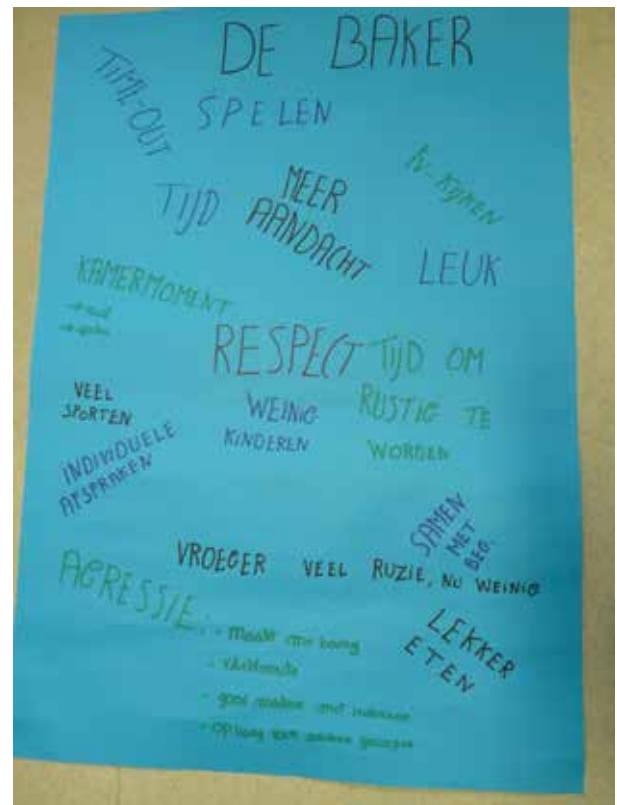 DE BAKER
TIME-OUT
SPELEN
TV-KIJKEN
TIJD
MEER
AANDACHT
LEUK
KAMERMOMENT
RESPECT
TIJD OM
RUSTIG TE
WORDEN
VEEL
SPORTEN
WEINIG
KINDEREN
INDIVIDUELE
AFSPRAKEN
SAMEN
MET
BEG.
VROEGER VEEL RUZIE, NU WEINIG
AGRESSIE:
- Maakt me bang
LEKKER
ETEN